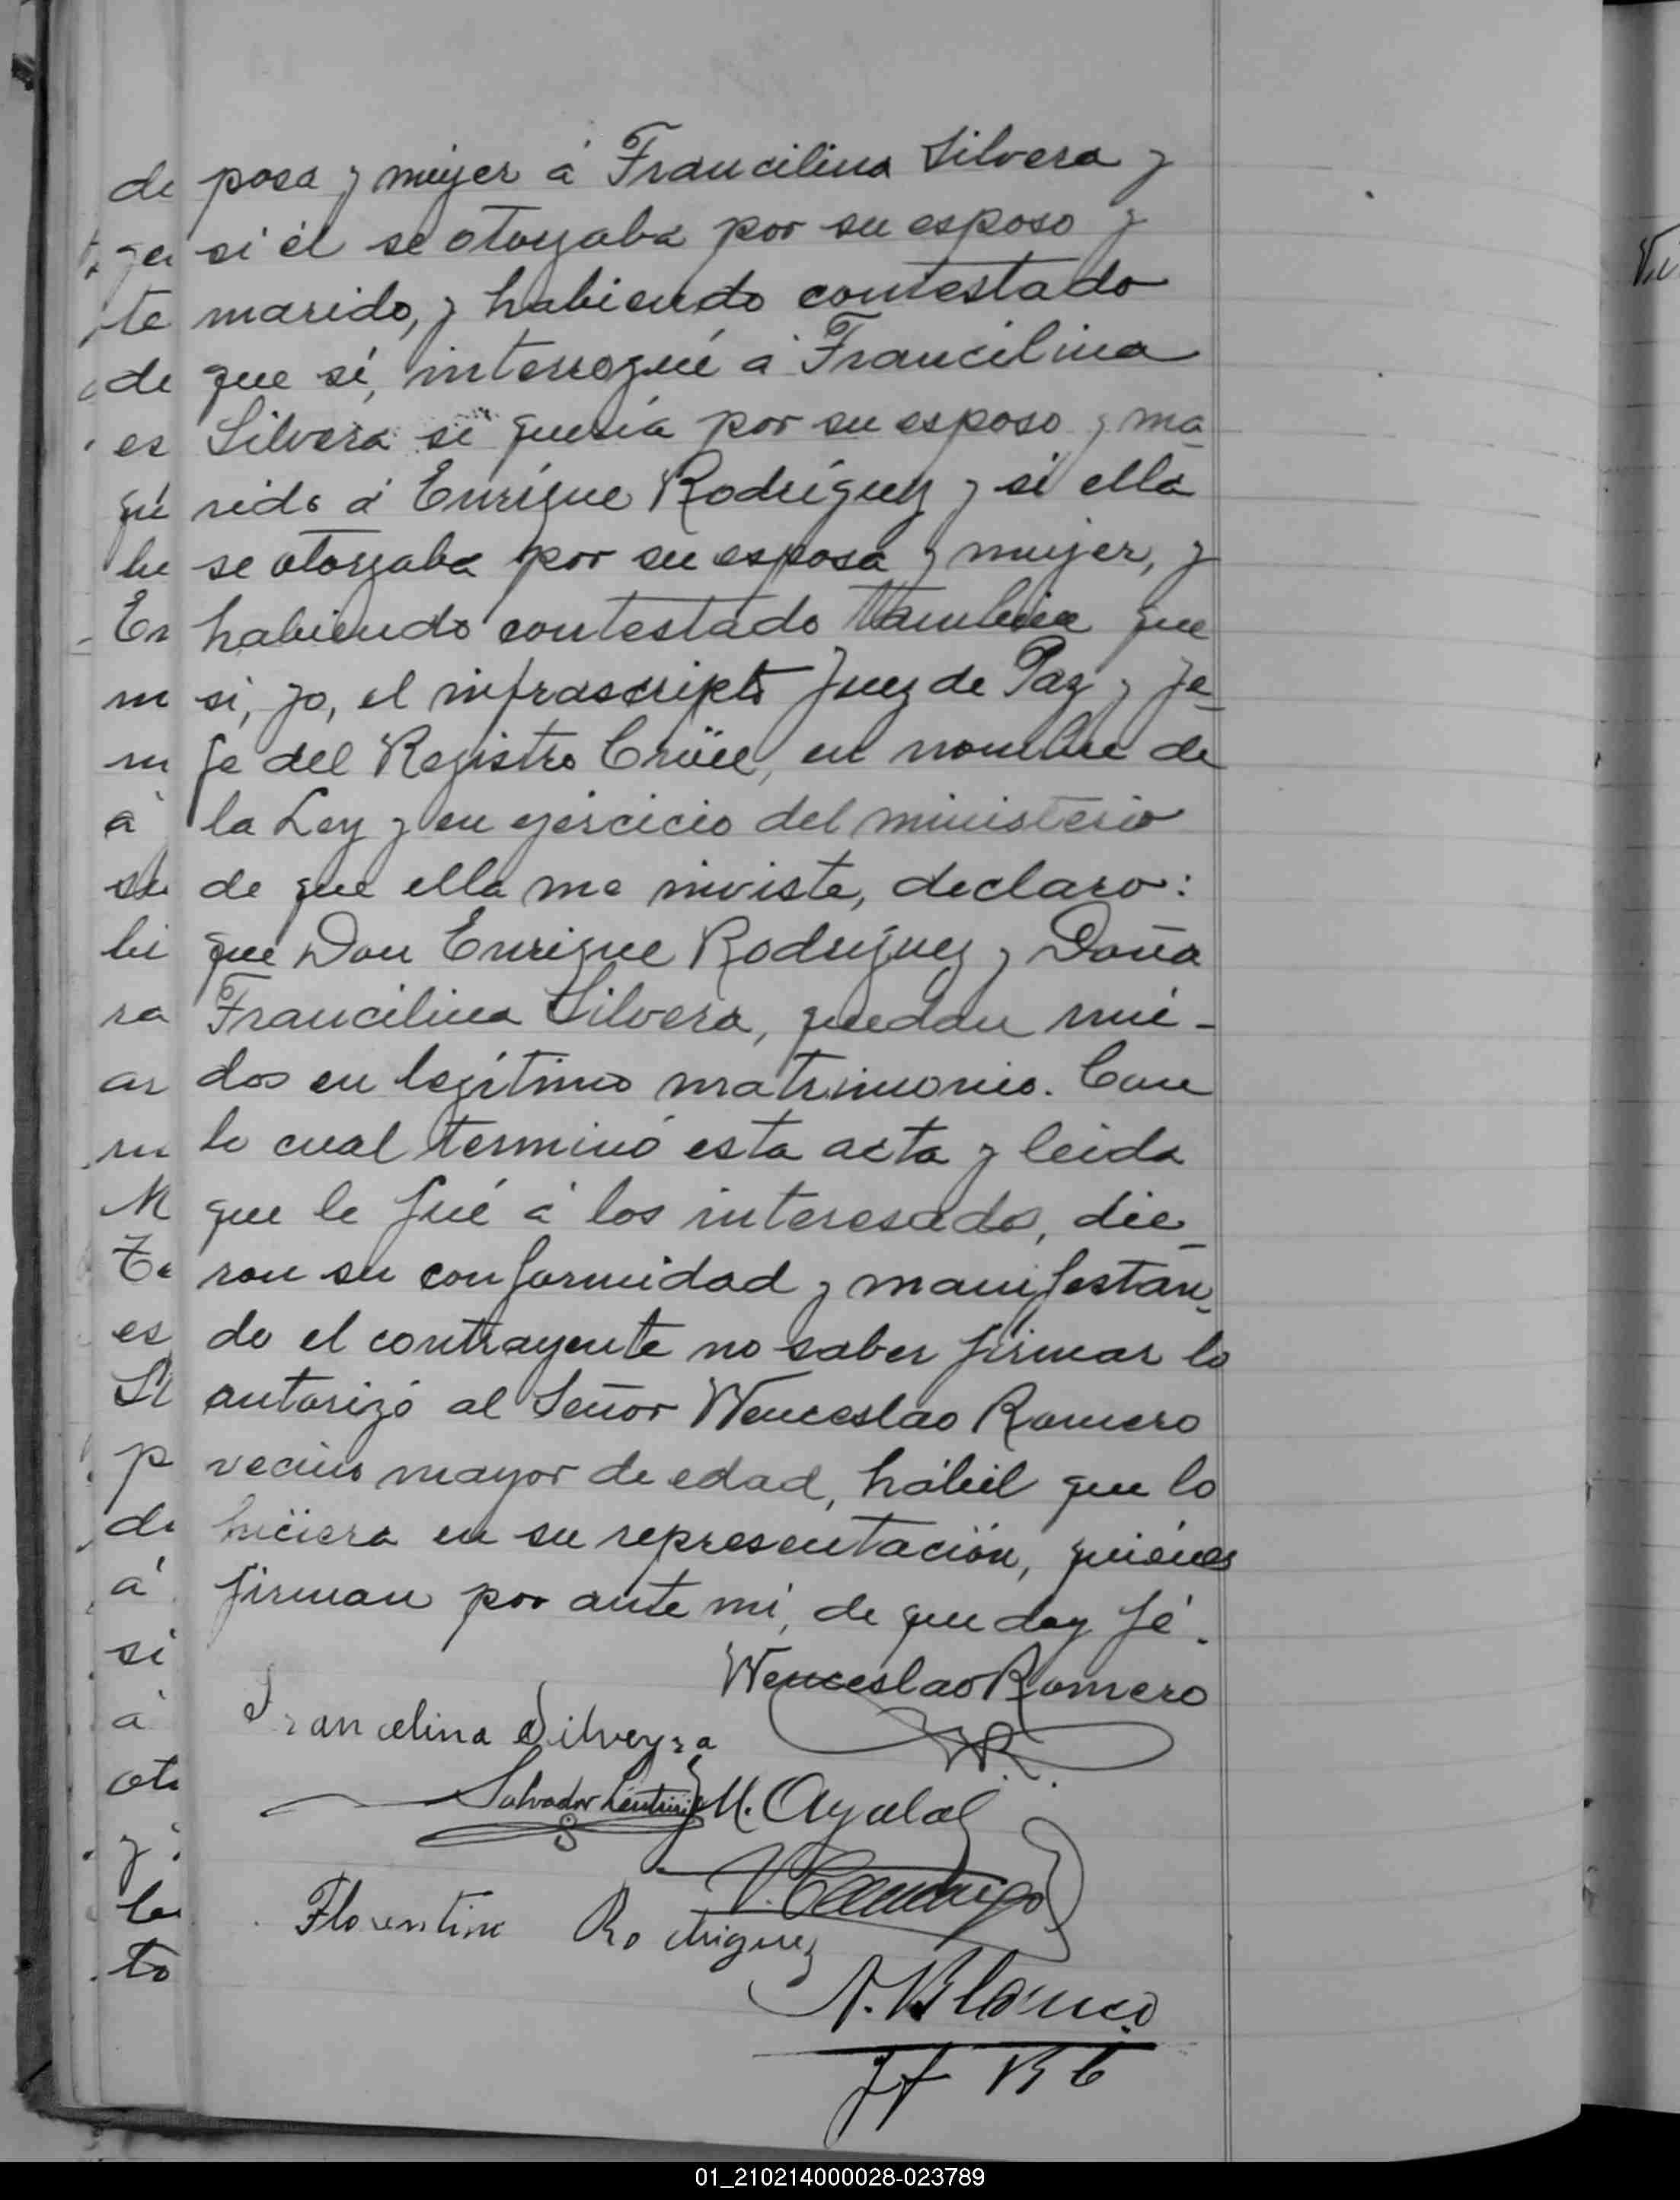 posa y mujer á Francilina Silvera y
si él se otorgaba por su esposo y
marido, y habiendo contestado
que sí, interrogué á Francilina
Silvera si quería por su esposo y ma-
rido á Enrique Rodríguez y si ella
se otorgaba por su esposa y mujer, y
habiendo contestado tambien que
si, yo, el infrascripto Juez de Paz y Je-
fe del Registro Civil, en nombre de
la Ley y en ejercicio del ministerio
de que ella me inviste, declaro:
que Don Enrique Rodriguez y Doña
Francilina Silvera, quedan uni-
dos en legítimo matrimonio. Con
lo cual terminó esta acta y leida
que le fué á los interesados, die-
ron su conformidad y manifestan-
do el contrayente no saber firmar lo
autorizó al Señor Wenceslao Romero
vecino mayor de edad, hábil que lo
hiciera en su representación, quiénes
firman por ante mi, de que doy fé.
Wenceslao Romero
Francelina Silveyra
WR.
Salvador M. Ayala
Florentino Rodriguez
A. Blanco
de
te
de
es
En
á
su
bi
ra
es
p
de
á
si
á
to
01_210214000028-023789